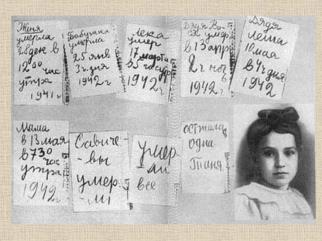 Женя
умерла
28 дек в
12 00 час
утра
1941 г
Бабушка
умерла
25 янв
3 ч дня
1942 г
Лека
умер
17 марта
в 5 час утр
1942 г
Дядя Ва
ся умер
в 13 апр
2 ч ноч
1942 г
Дядя
Леша
10 мая
в 4 ч дня
1942 г
Мама
в 13 мая
в 7 30
час
утра
1942 г
Савиче
-вы
умер-
-ли
Умер
ли
все
Осталась
одна
Таня